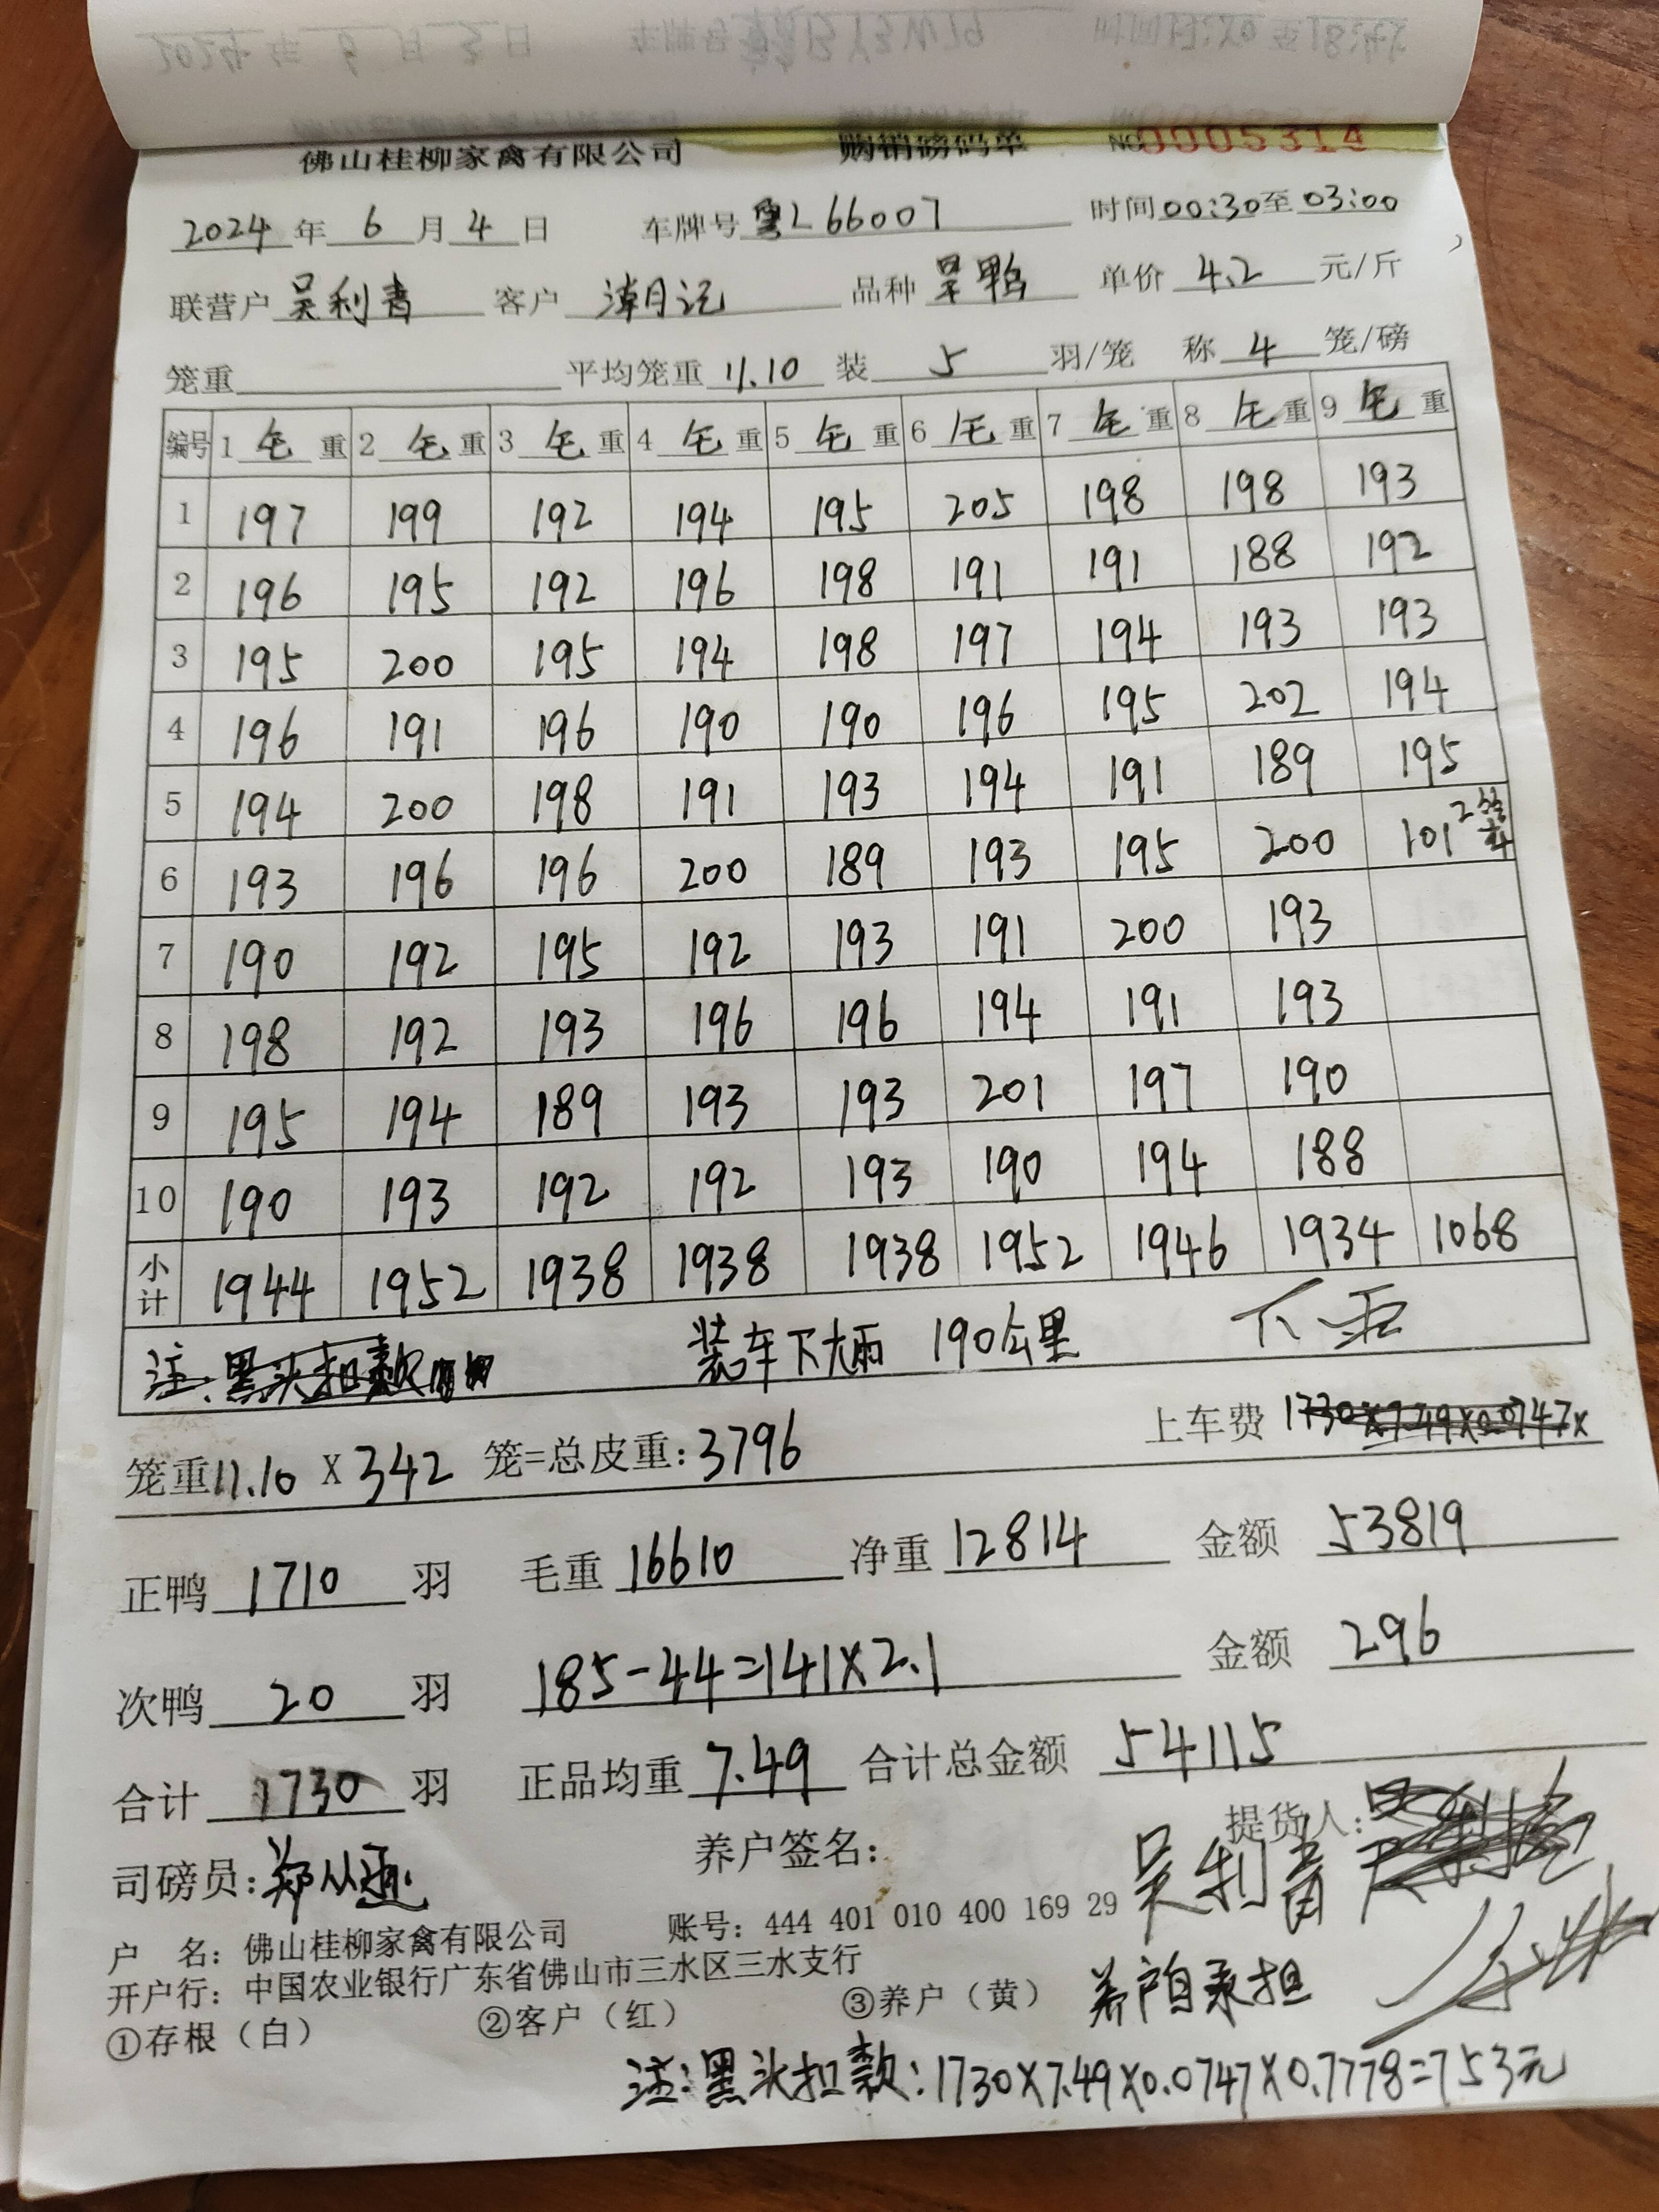 佛山桂柳家禽有限公司 购销磅码单 NO 0005314
2024年 6月 4日 车牌号 粤L66007 时间 00:30至 03:00
联营户 吴利青 客户 潮记 品种 旱鸭 单价 4.2 元/斤
笼重 平均笼重 11.10 装 5 羽/笼 称 4 笼/磅
编号 1 毛 重 2 毛 重 3 毛 重 4 毛 重 5 毛 重 6 毛 重 7 毛 重 8 毛 重 9 毛 重
1 197 199 192 194 195 205 198 198 193
2 196 195 192 196 198 191 191 188 192
3 195 200 195 194 198 197 194 193 193
4 196 191 196 190 190 196 195 202 194
5 194 200 198 191 193 194 191 189 195
6 193 196 196 200 189 193 195 200 101 2笼
7 190 192 195 192 193 191 200 193
8 198 192 193 196 196 194 191 193
9 195 194 189 193 193 201 197 190
10 190 193 192 192 193 190 194 188
小计 1944 1952 1938 1938 1938 1952 1946 1934 1068
注:黑头扣款 装车下大雨 190公里 下雨
笼重11.10 X 342 笼=总皮重:3796 上车费 1730×7.49×0.0747×
正鸭 1710 羽 毛重 16610 净重 12814 金额 53819
次鸭 20 羽 185-44=141×2.1 金额 296
合计 1730 羽 正品均重 7.49 合计总金额 54115
司磅员: 养户签名: 吴利青 提货人:
户 名:佛山桂柳家禽有限公司 账号:444 401 010 400 169 29
开户行:中国农业银行广东省佛山市三水区三水支行
①存根(白) ②客户(红) ③养户(黄) 养户自承担
注:黑头扣款:1730×7.49×0.0747×0.7778=753元